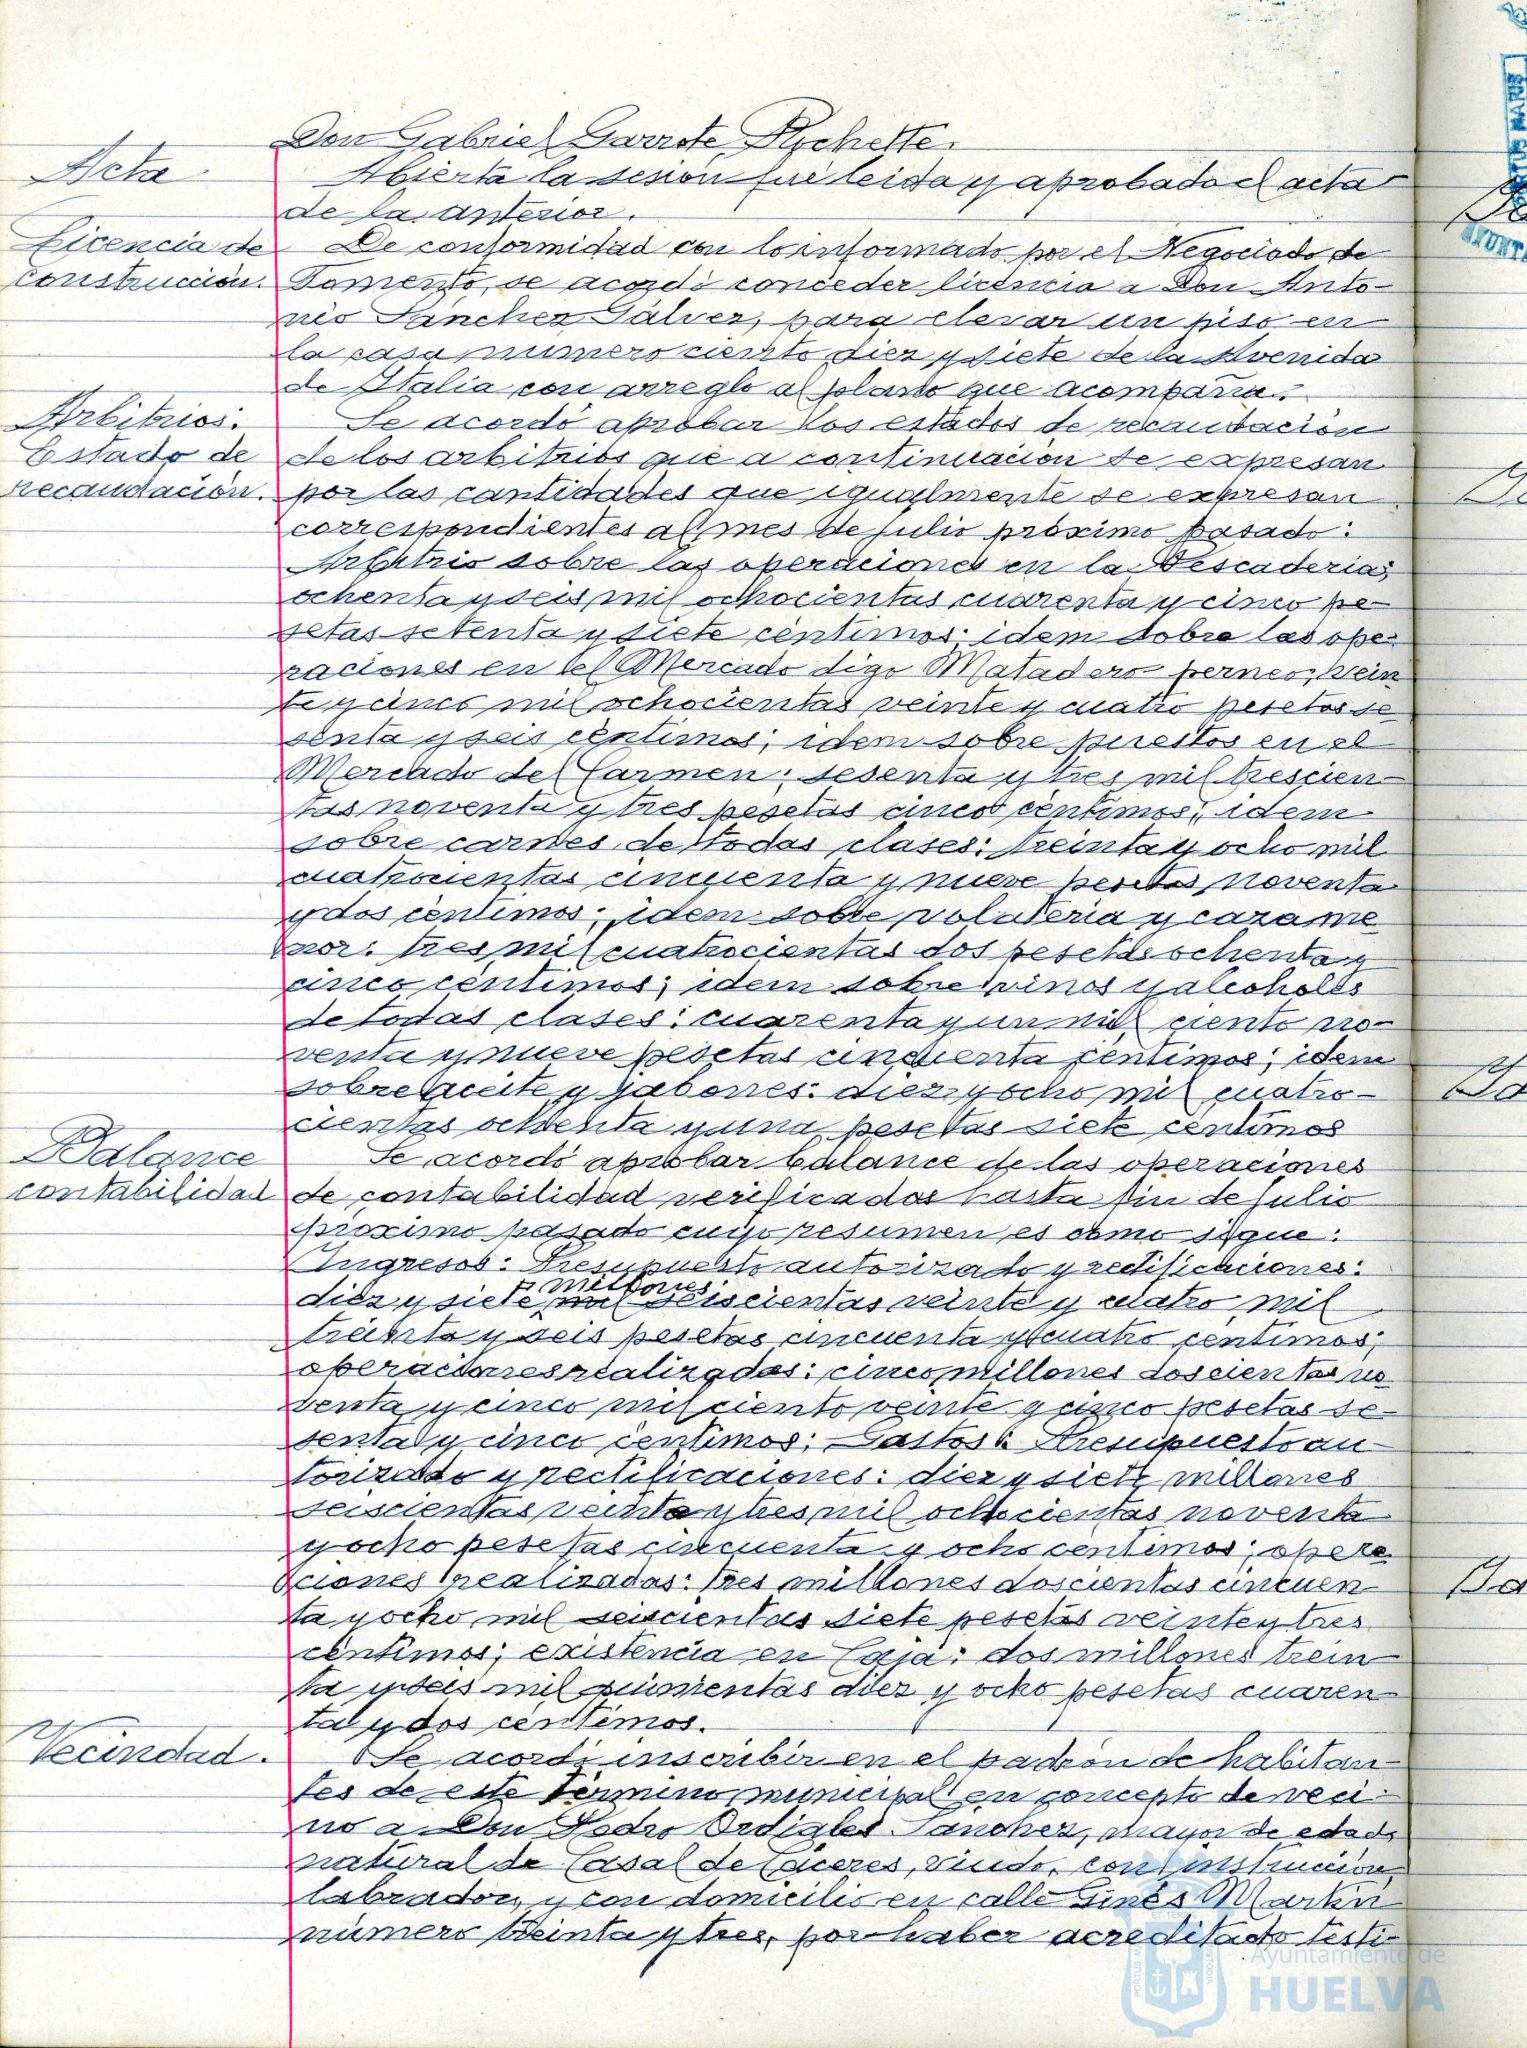 Don Gabriel Garrote Rychette.
Acta
Abierta la sesión fué leida y aprobado el acta
de la anterior.
Licencia de
construcción.
De conformidad con lo informado por el Negociado de
Fomento, se acordó conceder licencia a Don Anto-
nio Sánchez Gálvez, para elevar un piso en
la casa número ciento diez y siete de la Avenida
de Italia con arreglo al plano que acompaña.
Arbitrios:
Estado de
recaudación.
Se acordó aprobar los estados de recaudación
de los arbitrios que a continuación se expresan
por las cantidades que igualmente se expresan
correspondientes al mes de julio próximo pasado:
Arbitrio sobre las operaciones en la Pescaderia;
ochenta y seis mil ochocientas cuarenta y cinco pe-
setas setenta y siete céntimos; idem sobre las ope-
raciones en el Mercado digo Matadero perneo; vein
te y cinco mil ochocientas veinte y cuatro pesetas se
senta y seis céntimos; idem sobre puestos en el
Mercado del Carmen; sesenta y tres mil trescien-
tas noventa y tres pesetas cinco céntimos; idem
sobre carnes de todas clases: treinta y ocho mil
cuatrocientas cincuenta y nueve pesetas noventa
y dos céntimos; idem sobre volateria y caza me
nor: tres mil cuatrocientas dos pesetas ochenta y
cinco céntimos; idem sobre vinos y alcoholes
de todas clases: cuarenta y un mil ciento no-
venta y nueve pesetas cincuenta céntimos; idem
sobre aceite y jabones: diez y ocho mil cuatro-
cientas ochenta y una pesetas siete céntimos
Balance
contabilidad
Se acordó aprobar balance de las operaciones
de contabilidad verificadas hasta fin de Julio
próximo pasado cuyo resumen es como sigue:
Ingresos: Presupuesto autorizado y rectificaciones:
millones
diez y siete mil seiscientas veinte y cuatro mil
treinta y seis pesetas cincuenta y cuatro céntimos;
operaciones realizadas: cinco millones doscientas no
venta y cinco mil ciento veinte y cinco pesetas se-
senta y cinco céntimos; Gastos: Presupuesto au-
torizado y rectificaciones: diez y siete millones
seiscientas veinte y tres mil ochocientas noventa
y ocho pesetas cincuenta y ocho centimos; opera
ciones realizadas: tres millones doscientas cincuen
ta y ocho mil seiscientas siete pesetas veinte y tres
céntimos; existencia en Caja: dos millones trein
ta y seis mil quinientas diez y ocho pesetas cuaren
ta y dos céntimos.
Vecindad.
Se acordó inscribir en el padrón de habitan-
tes de este término municipal en concepto de veci-
no a Don Pedro Ordiales Sánchez, mayor de edad,
natural de Casal de Cáceres, viudo, con instrucción,
labrador, y con domicilio en calle Ginés Martin
número treinta y tres, por haber acreditado testi-
Ayuntamiento de
HUELVA